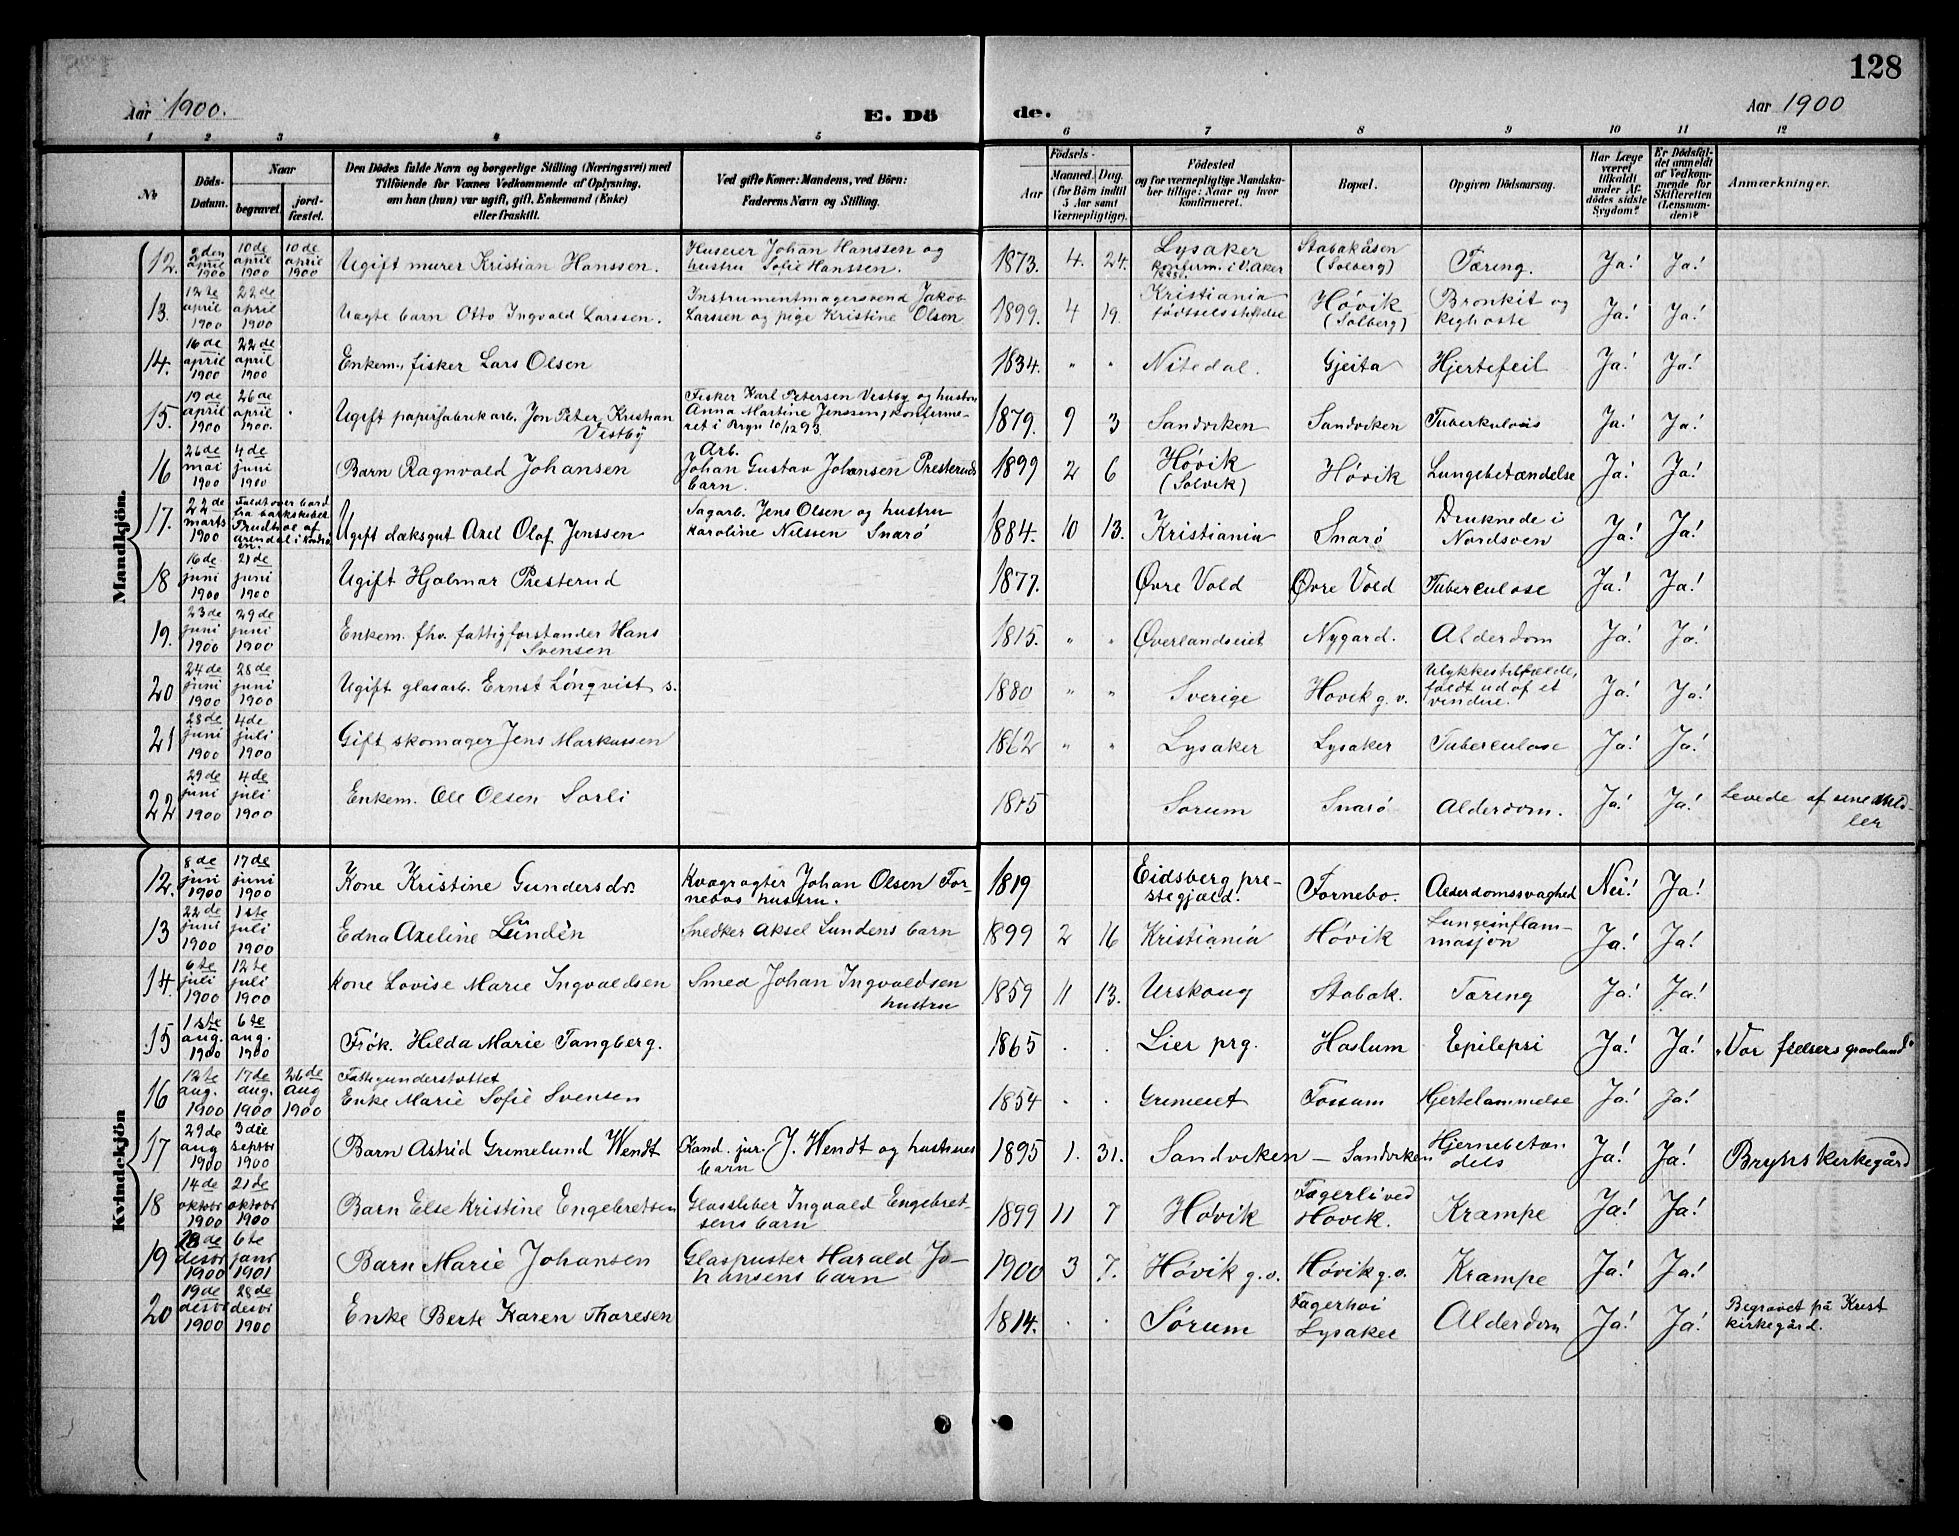 128
Aar 1900. E. Dö de. Aar 1900
1 2 3 4 5 6 7 8 9 10 11 12
№
Döds-Datum.
Naar
begravet.
jordfæstet.
Den Dödes fulde Navn og borgerlige Stilling (Næringsvei) med
Tilföiende for Voxnes Vedkommende af Oplysning,
om han (hun) var ugift, gift, Enkemand (Enke)
eller fraskilt.
Ved gifte Koner: Mandens, ved Börn:
Faderens Navn og Stilling.
Födsels-
Aar
Maaned. Dag.
(for Börn indtil
5 Aar samt
Værnepligtige).
Födested
og for værnepligtige Mandska-
ber tillige: Naar og hvor
konfirmeret.
Bopæl.
Opgiven Dödsaarsag.
Har Læge
været
tilkaldt
under Af-
dödes sidste
Sygdom?
Er Dödsfal-
det anmeldt
af Vedkom-
mende for
Skifteretten
(Lensman-
den)?
Anmærkninger.
Mandkjön.
12. 2den april 1900 10de april 1900 10de april 1900 Ugift murer Kristian Hanssen. Huseier Johan Hanssen og
hustru Sofie Hanssen. 1873. 4. 24. Lysaker
konfirm. i V. Aker Stabakåsen
(Solberg) Tæring. Ja! Ja!
13. 12te april 1900 22de april 1900 Uægte barn Otto Ingvald Larssen. Instrumentmagersvend Jakob
Larssen og pige Kristine Olsen 1899. 4 19. Kristiania
fødselsstiftelse Høvik
(Solberg) Bronkit og
kighoste Ja! Ja!
14. 16de april 1900 22de april 1900 Enkem., fisker Lars Olsen 1834. " " Nitedal. Gjeita Hjertefeil Ja! Ja!
15. 19de april 1900 26de april 1900. Ugift papirfabrikarb. Jon Peter Kristian
Vestby Fisker Karl Petersen Vestby og hustru
Anna Martine Jenssen, konfirme-
ret i Bryn 10/12 93. 1879. 9 3 Sandviken Sandviken Tuberkulosis Ja! Ja!
16 26de mai 1900 4de juni 1900 Barn Ragnvald Johansen Arb.
Johan Gustav Johansen Presteruds
barn. 1899 2 6 Høvik
(Solvik) Høvik Lungebetændelse Ja! Ja!
17. 22de marts 1900 Faldt over bord
fra barkskibet
Prudhoe af
Arendal i
Ugift dæksgut Axel Olaf Jenssen Sagarb. Jens Olsen og hustru
Karoline Nilssen Snarø 1884. 10 13. Kristiania Snarø Druknede i
Nordsøen Ja! Ja!
18 16de juni 1900 21de juni 1900 Ugift Hjalmar Presterud 1877. Øvre Vold Øvre Vold Tuberculose Ja! Ja!
19. 23de juni 1900 29de juni 1900 Enkem. fhv. fattigforstander Hans
Svensen 1815. " " Øverlandseiet Nygard. Alderdom Ja! Ja!
20 24de juni 1900 28de juni 1900 Ugift glasarb. Ernst Lønqvist s. 1880 " " Sverige Høvik g.v. Ulykkestilfælde,
faldt ud af et
vindue. Ja! Ja!
21 28de juni 1900 4de juli 1900 Gift skomager Jens Markussen 1862 " " Lysaker Lysaker Tuberculose Ja! Ja!
22 29de juni 1900 4de juli 1900 Enkem. Ole Olsen Sorli 1815 Sorum Snarø Alderdom. Ja! Ja! Levede af sine mid-
ler
Kvindekjön
12. 8de juni 1900 17de juni 1900 Kone Kristine Gundersdr. Kvægrøgter Johan Olsen For-
nebos hustru. 1819 Eidsberg pre-
stegjæld. Fornebo. Alderdomssvaghed Nei! Ja!
13 22de juni 1900 1ste juli 1900 Edna Axeline Lündén Snedker Aksel Lundens barn 1899 2 16 Kristiania Høvik Lungeinflam-
masjon Ja! Ja!
14. 6te juli 1900 12te juli 1900 Kone Lovise Marie Ingvaldsen Smed Johan Ingvaldsen
hustru 1859 11 13. Urskoug Stabæk. Tæring Ja! Ja!
15 1ste aug. 1900 6te aug. 1900 Frøk. Hilda Marie Tangberg. 1865 . . Lier prg. Haslum Epilepsi Ja! Ja! "Vor frelsers gravlund"
16 12te aug. 1900 17de aug. 1900 26de aug 1900 Fattigunderstøttet
Enke Marie Sofie Svensen 1854 . . Grimeiet Fossum Hjertelammelse Ja! Ja!
17 29de aug 1900 3die septbr 1900 Barn Astrid Grimelund Wendt Kand. jur. J. Wendt og hustrues
barn 1895 1. 31. Sandviken – Sandviken Hjernebetæn
delse Ja! Ja! Bryns kirkegård
18 14de oktobr 1900 21de oktobr 1900 Barn Else Kristine Engebretsen Glassliber Ingvald Engebret-
sens barn 1899 11 7 Høvik Fagerli ved
Høvik. Krampe Ja! Ja!
19 28de desbr 1900 6te janr 1901 Barn Marie Johansen Glaspuster Harald Jo-
hansens barn 1900 3 7. Høvik g.v. Høvik g.v. Krampe Ja! Ja!
20 19de desbr 1900 28de desbr 1900 Enke Berte Karen Thoresen 1814. . . Sørum Fagerhøi
Lysaker Alderdom Ja! Ja! Begravet på Krist
kirkegård.